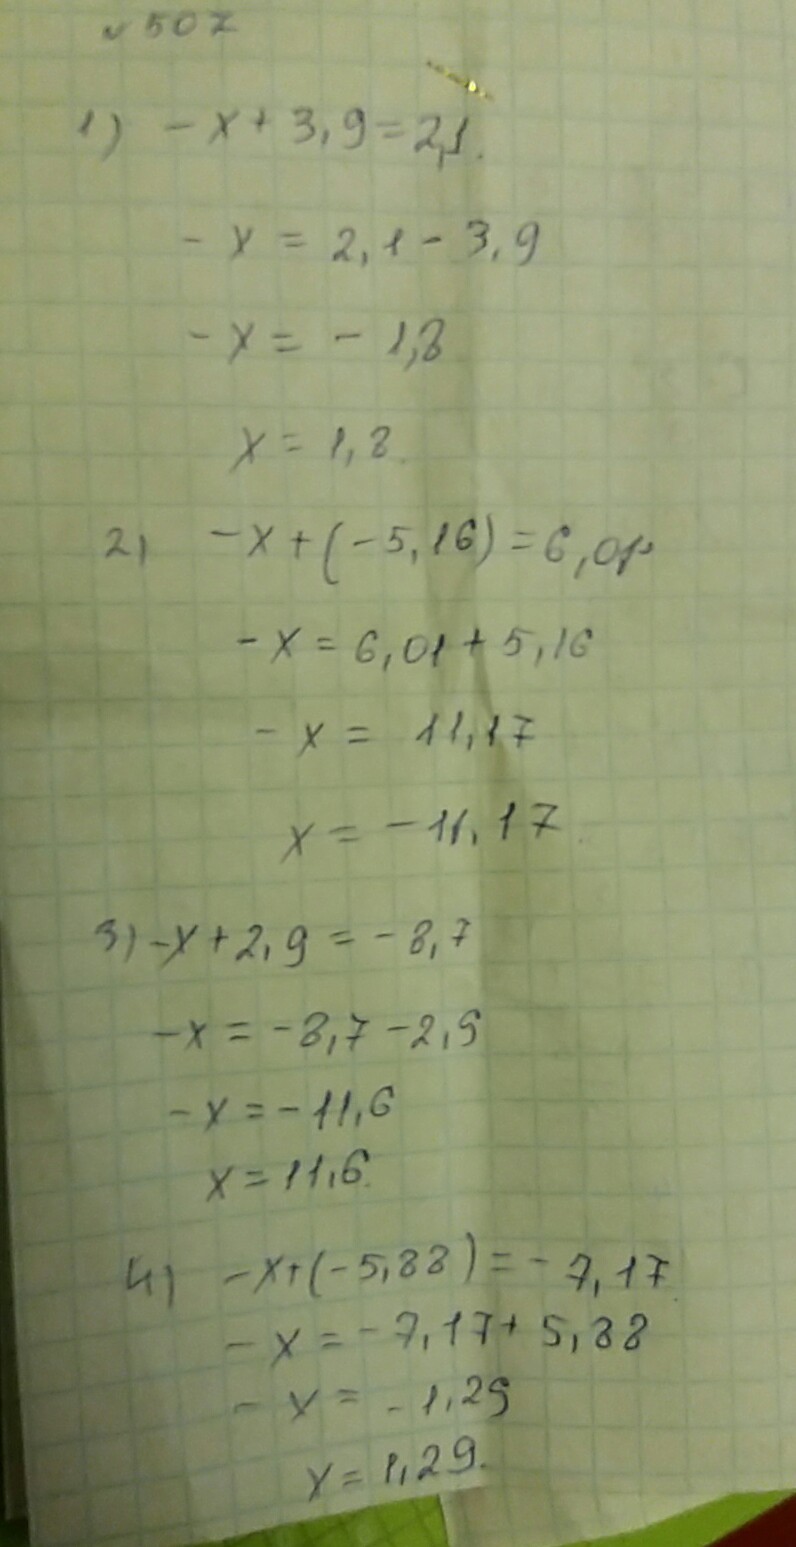 №507
1) -x+3,9=2,1.
-x=2,1-3,9
-x=-1,8
x=1,8.
2) -x+(-5,16)=6,01
-x=6,01+5,16
-x=11,17
x=-11,17.
3) -x+2,9=-8,7
-x=-8,7-2,9
-x=-11,6
x=11,6.
4) -x+(-5,88)=-7,17
-x=-7,17+5,88
-x=-1,29
x=1,29.